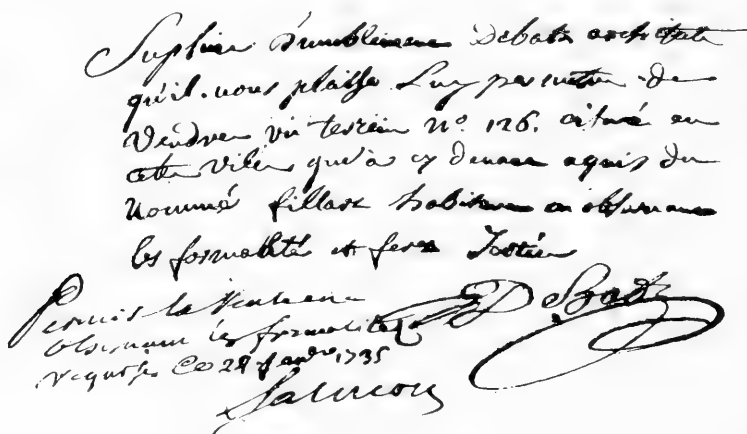 Suplie humblement Debatz architecte
qu'il vous plaisse Luy permettre de
Vendre un terrein N.º 126. situé en
cette Ville qu'à cy devant aquis du
Nommé fillart habitant en observant
les formalités et ferez Justice
DeBatz
Permis la Vente en
observant les formalités
requises Ce 28 Janvr 1735
Salmon